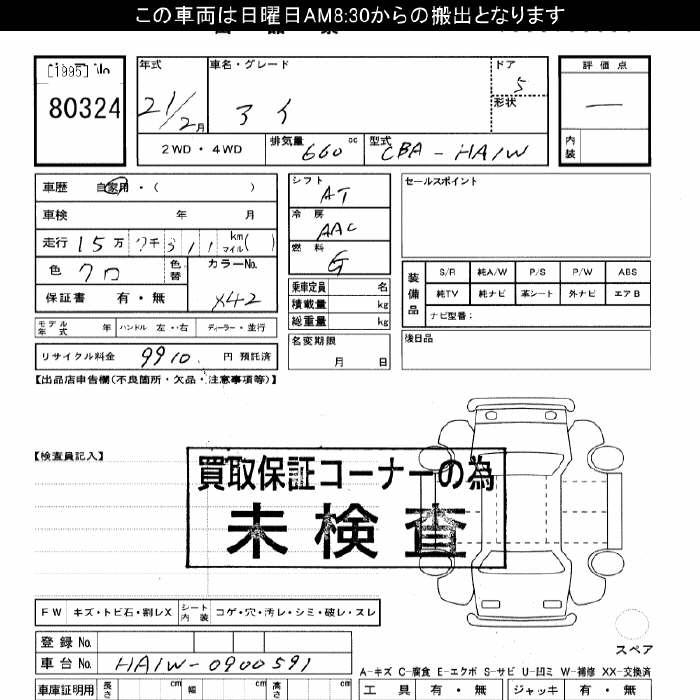 この車両は日曜日AM8:30からの搬出となります
[1995] No
80324
年式
21/2月
車名・グレード
アイ
ドア
5
形状
評価点
—
内装
2WD・4WD
排気量
660 cc
型式
CBA-HA1W
車歴 自家用・( )
車検 年 月
走行 15万7千311 km マイル( )
色 クロ 色替
カラーNo.
X42
保証書 有・無
モデル年式 年 ハンドル 左・右 ディーラー・並行
リサイクル料金 9910 円 預託済
シフト
AT
冷房
AAC
燃料
G
乗車定員 名
積載量 kg
総重量 kg
名変期限
月 日
セールスポイント
装備品
S/R 純A/W P/S P/W ABS
純TV 純ナビ 革シート 外ナビ エアB
ナビ型番:
後日品
【出品店申告欄(不良箇所・欠品・注意事項等)】
【検査員記入】
買取保証コーナーの為
未検査
FW キズ・トビ石・割レX シート内装 コゲ・穴・汚レ・シミ・破レ・スレ
スペア
登録No.
車台No. HA1W-0900591
A-キズ C-腐食 E-エクボ S-サビ U-凹ミ W-補修 XX-交換済
車庫証明用 長さ cm 幅 cm 高さ cm
工具 有・無 ジャッキ 有・無